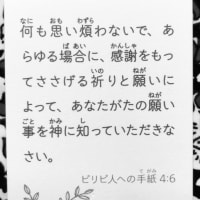 何も思い煩わないで、あ
らゆる場合に、感謝をもっ
てささげる祈りと願いに
よって、あなたがたの願い
事を神に知っていただきな
さい。
ピリピ人への手紙 4:6